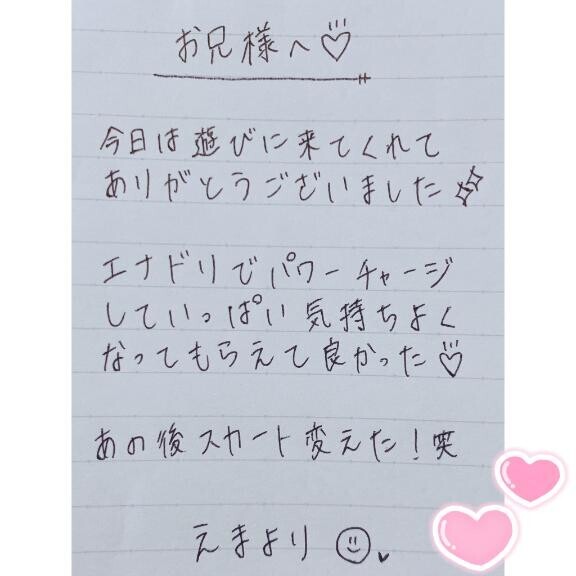 お兄様へ♡
今日は遊びに来てくれて
ありがとうございました✨
エナドリでパワーチャージ
していっぱい気持ちよく
なってもらえて良かった♡
あの後スカート変えた!笑
えまより☺♥